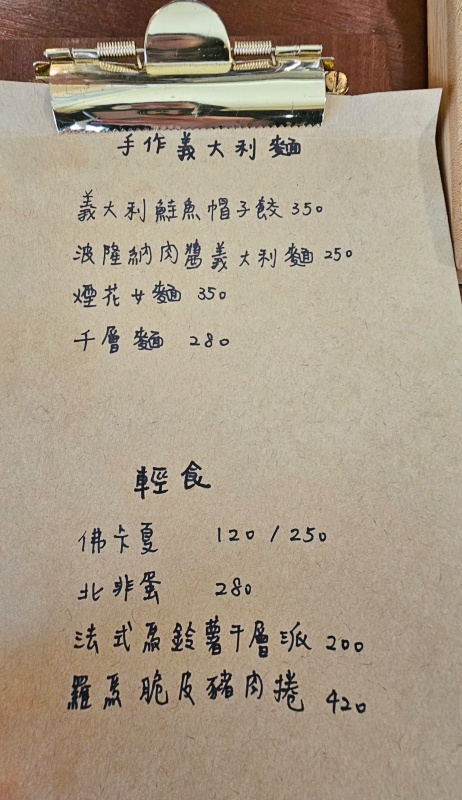 手作義大利麵
義大利鮭魚帽子餃 350
波隆納肉醬義大利麵 250
煙花女麵 350
千層麵 280
輕食
佛卡夏 120 / 250
北非蛋 280
法式馬鈴薯千層派 200
羅馬脆皮豬肉捲 420